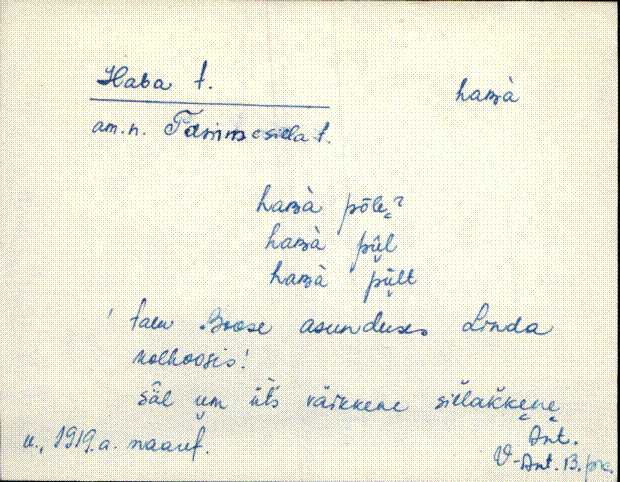 Haba t.
haʙà
am.n. Tammesilla t.
haʙà põlɛ?
haʙà pǖl
haʙà pǖlt
talu Boose asunduses Linda
kolhoosis!
säl um üt's väikkene sillakkene
u. 1919.a. naaruf.
Ant.
V-Ant. B.